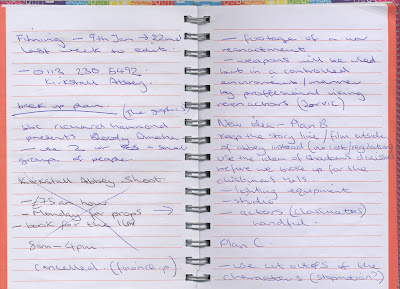 Filming - 9th Jan → 22nd
last week to edit.
- 0113 230 5492
Kirkstall Abbey.
back up plan (the graphics)
bbc richard hammond
presents Bloody Omaha
- use 2 or - small
groups of people.
Kirkstall Abbey Shoot
- £75 an hour
- Monday for props →
- book for the 16th
8am - 4pm
cancelled. (finance)
- footage of a war
reenactment
- weapons will be used
but in a controlled
environment / manner
by proffessional viking
reenactors (Jorvic)
New Idea - Plan B
keep the story line / film outside
of abbey instead (no cost/regulations)
use the idea of shadows discussed
before we broke up for the
christmas hols.
- lighting equipment
- studio
- actors (classmates)
handful.
Plan C.
- use cut outs of the
characters (stopmotion?)